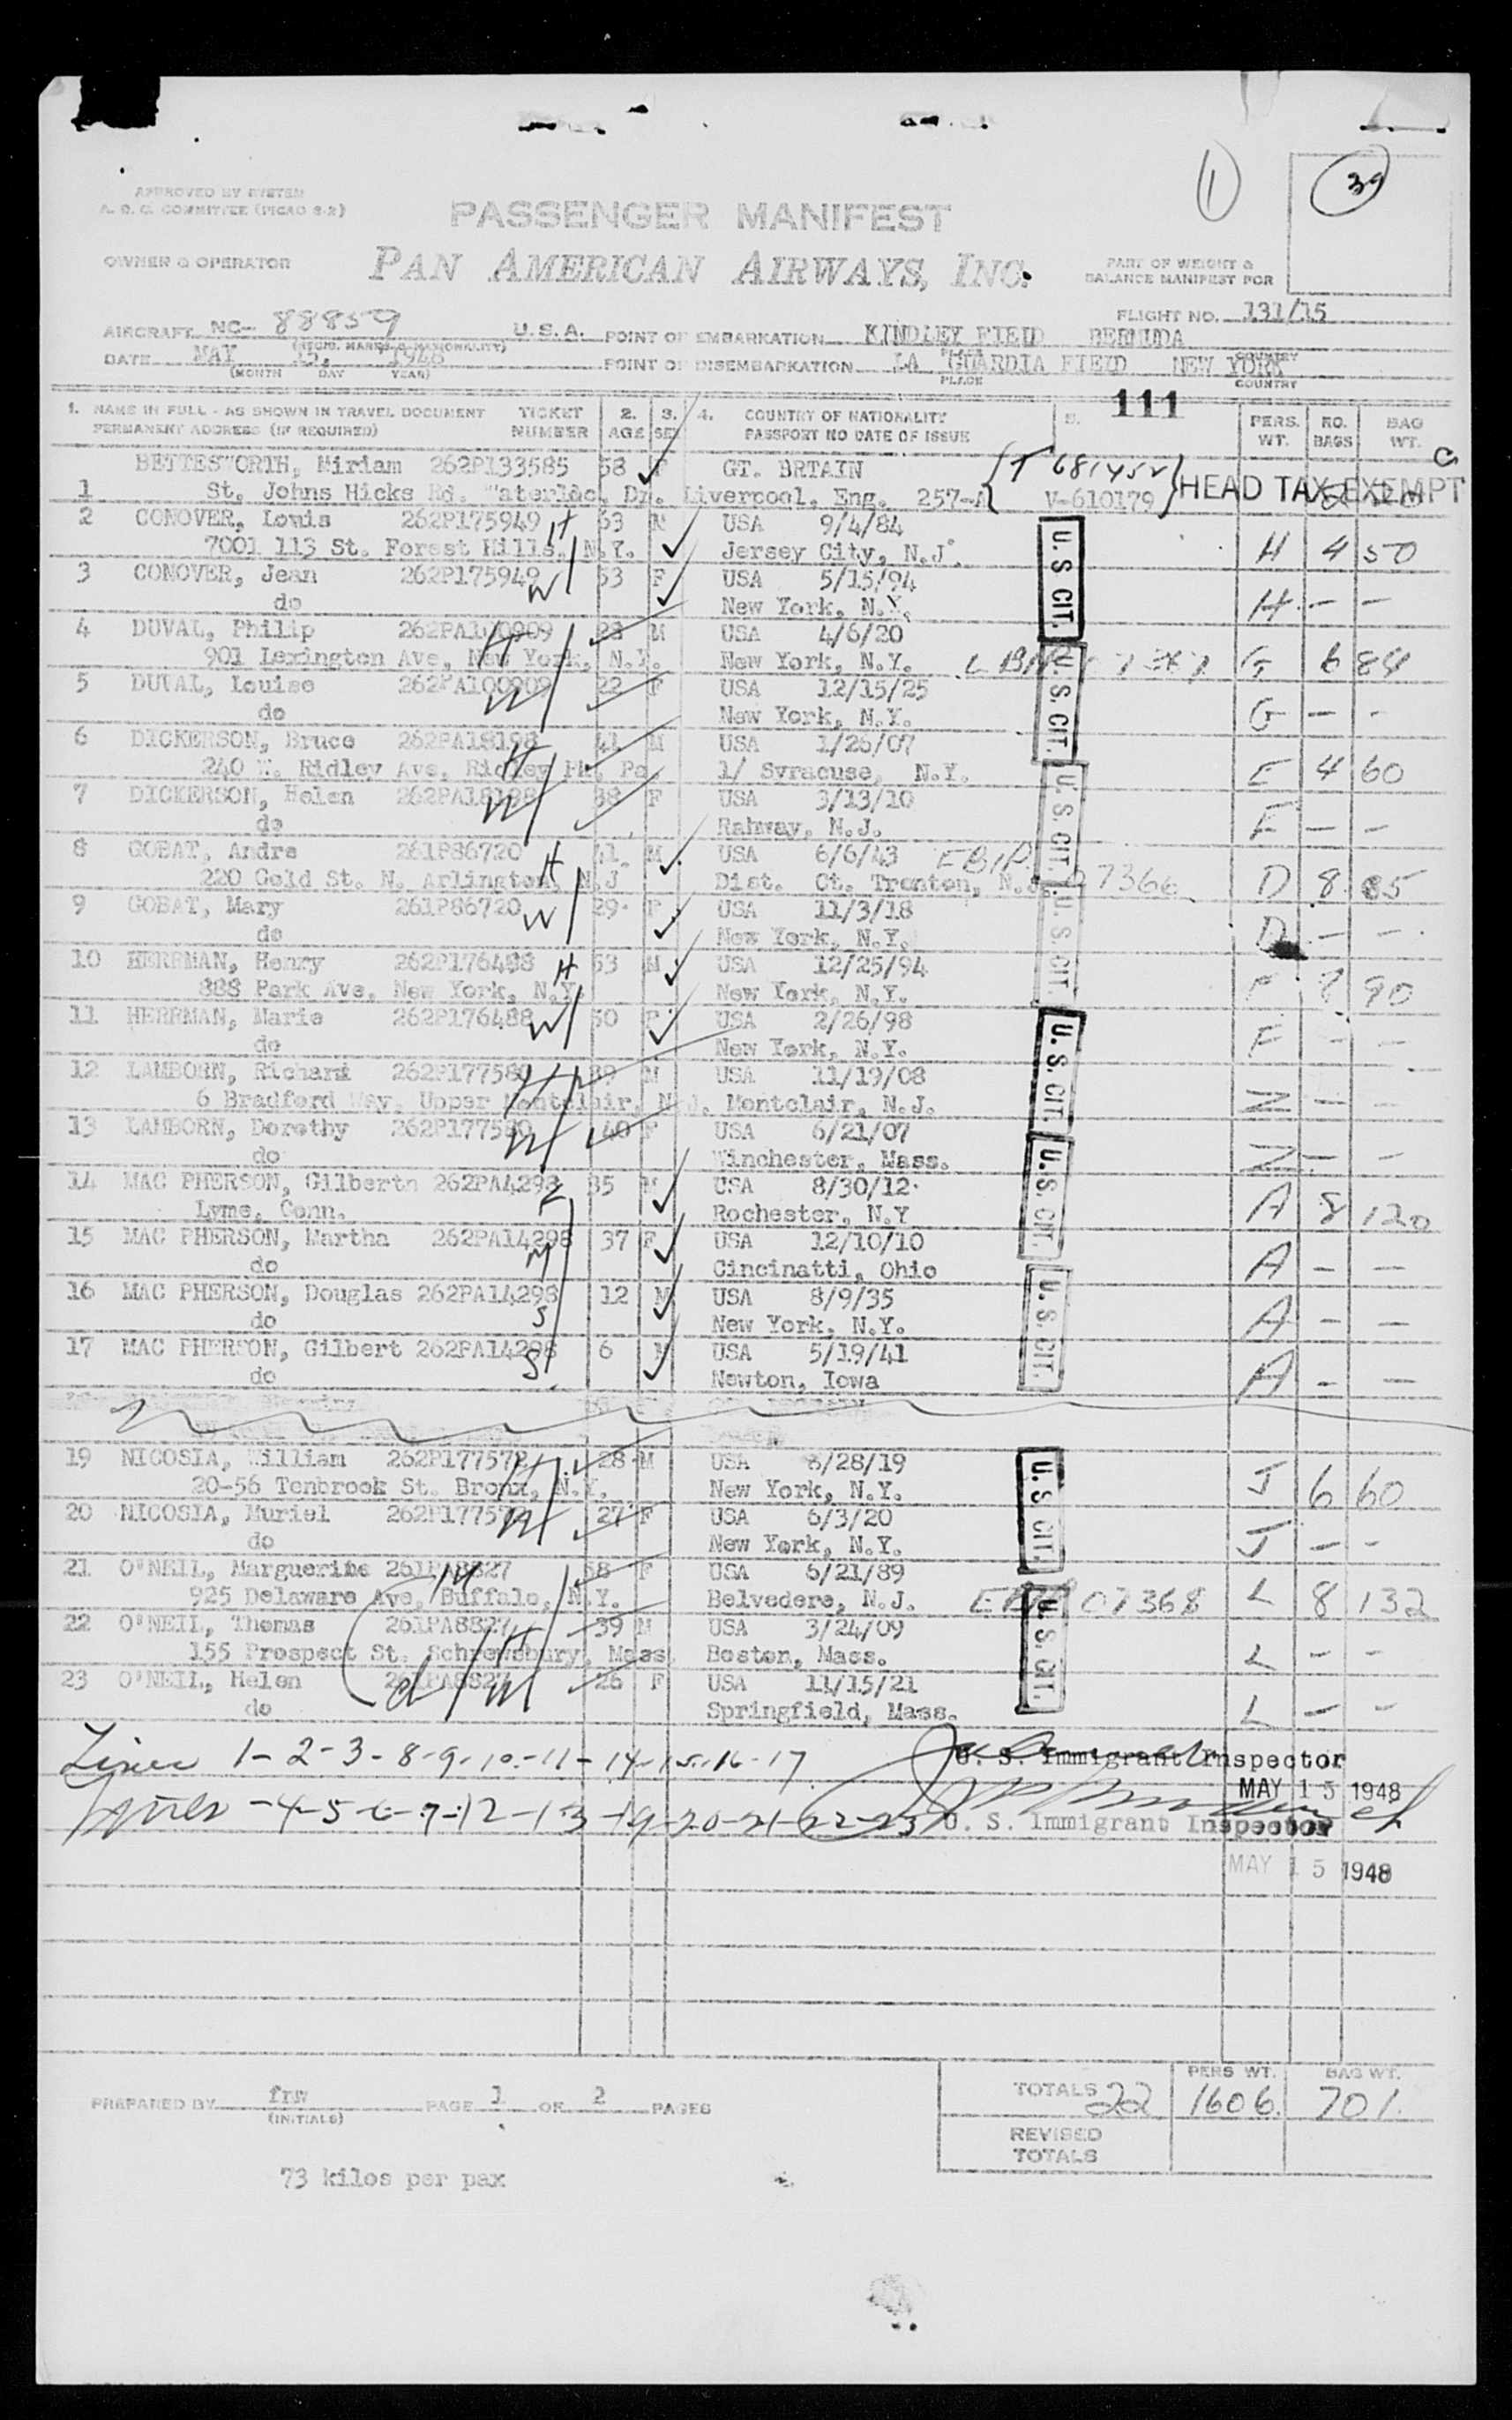 1
39
APPROVED BY SYSTEM
A. O. C. COMMITTEE (PICAO 8-2)
PASSENGER MANIFEST
OWNER & OPERATOR
PAN AMERICAN AIRWAYS, INC.
PART OF WEIGHT &
BALANCE MANIFEST FOR
FLIGHT NO. 131/15
AIRCRAFT NC- 88859 U.S.A. POINT OF EMBARKATION KINDLEY FIELD BERMUDA
DATE MAY 15, 1948 POINT OF DISEMBARKATION LA GUARDIA FIELD NEW YORK
(MONTH DAY YEAR) PLACE COUNTRY
1. NAME IN FULL - AS SHOWN IN TRAVEL DOCUMENT TICKET 2. 3. 4. COUNTRY OF NATIONALITY 5. 111 PERS. NO. BAG
PERMANENT ADDRESS (IF REQUIRED) NUMBER AGE SEX PASSPORT NO DATE OF ISSUE WT. BAGS WT.
BETTESWORTH, Miriam 262P133585 58 F GT. BRTAIN T 681452
1 St. Johns Hicks Rd. Waterloo, Dr. Liverpool, Eng. 257-A V-610179 HEAD TAX EXEMPT
2 CONOVER, Louis 262P175949 H 63 M USA 9/4/84
7001 113 St. Forest Hills, N.Y. Jersey City, N.J. U.S. CIT. H 4 50
3 CONOVER, Jean 262P175949 W 53 F USA 5/15/94
do New York, N.Y. H - -
4 DUVAL, Philip H 28 M USA 4/6/20
901 Lexington Ave, New York, N.Y. New York, N.Y. U.S. CIT. G 6 84
5 DUVAL, Louise 262PA100909 W 22 F USA 12/15/25
do New York, N.Y. G - -
6 DICKERSON, Bruce 262PA18198 H 41 M USA 1/26/07
240 W. Ridley Ave, Ridley Pk, Pa 1/ Syracuse, N.Y. E 4 60
7 DICKERSON, Helen 262PA18198 W 38 F USA 3/13/10
do Rahway, N.J. U.S. CIT. E - -
8 GOBAT, Andre 261P86720 H 41 M USA 6/6/43
220 Gold St. N. Arlington, N.J Dist. Ct. Trenton, N.J. 07366 D 8 85
9 GOBAT, Mary 261P86720 W 29 F USA 11/3/18
do New York, N.Y. U.S. CIT. D - -
10 HERRMAN, Henry 262P176488 H 53 M USA 12/25/94
888 Park Ave, New York, N.Y. New York, N.Y. F 7 90
11 HERRMAN, Marie 262P176488 W 50 F USA 2/26/98
do New York, N.Y. U.S. CIT. F - -
12 LAMBORN, Richard 262P177580 H 39 M USA 11/19/08
6 Bradford Way, Upper Montclair, N.J. Montclair, N.J. N - -
13 LAMBORN, Dorothy 262P177580 W 40 F USA 6/21/07
do Winchester, Mass. U.S. CIT. N - -
14 MAC PHERSON, Gilberth 262PA4298 35 M USA 8/30/12
Lyme, Conn. Rochester, N.Y A 8 120
15 MAC PHERSON, Martha 262PA14298 M 37 F USA 12/10/10
do Cincinatti, Ohio A - -
16 MAC PHERSON, Douglas 262PA14298 S 12 M USA 8/9/35
do New York, N.Y. U.S. CIT. A - -
17 MAC PHERSON, Gilbert 262PA14298 S 6 M USA 5/19/41
do Newton, Iowa A - -
19 NICOSIA, William 262P177572 H 28 M USA 8/28/19
20-56 Tenbroek St. Bronx, N.Y. New York, N.Y. U.S. CIT. J 6 60
20 NICOSIA, Muriel 262P177572 W 27 F USA 6/3/20
do New York, N.Y. J - -
21 O'NEIL, Marguerite 261PA8827 M 58 F USA 6/21/89
925 Delaware Ave, Buffalo, N.Y. Belvedere, N.J. 07368 U.S. CIT. L 8 132
22 O'NEIL, Thomas 261PA8827 H 39 M USA 3/24/09
155 Prospect St. Schrewsbury, Mass. Boston, Mass. L - -
23 O'NEIL, Helen 261PA8827 W 26 F USA 11/15/21
do Springfield, Mass. L - -
Lines 1-2-3-8-9-10-11-14-15-16-17 U. S. Immigrant Inspector
MAY 15 1948
Lines -4-5-6-7-12-13-19-20-21-22-23 U. S. Immigrant Inspector
MAY 15 1948
PERS WT. BAG WT.
TOTALS 22 1606 701
PREPARED BY frw PAGE 1 OF 2 PAGES
(INITIALS)
REVISED
TOTALS
73 kilos per pax